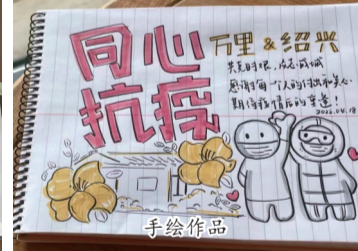 同心
抗疫
万里 & 绍兴
共克时艰，众志成城
感谢每一个人的付出和关心
期待疫情后的幸逢！
2022.04.18
手绘作品